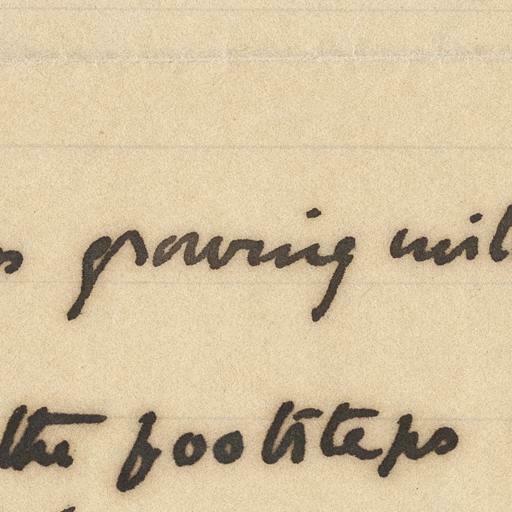 growing
the footsteps